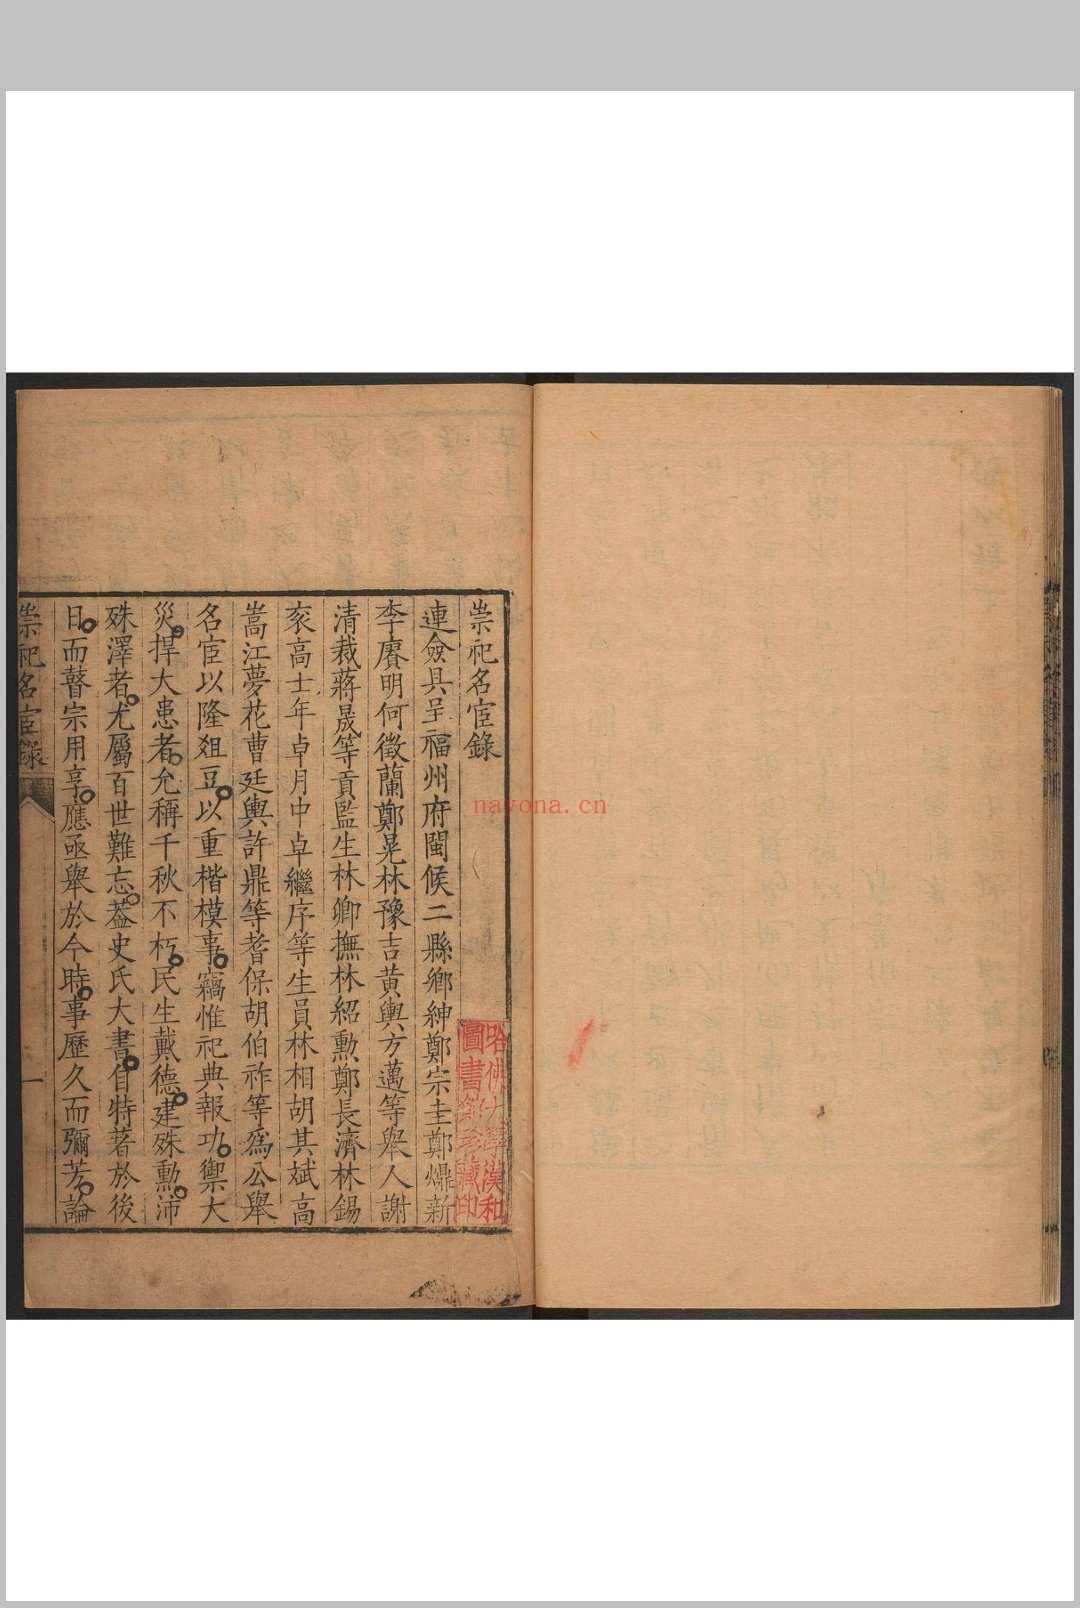 崇祀名宦錄
連僉具呈福州府閩侯二縣鄉紳鄭宗圭鄭爌新
李賡明何徵蘭鄭晃林豫吉黃輿方邁等舉人謝
清裁蔣晟等貢監生林卿撫林紹勲鄭長濟林錫
衮高士年卓月中卓繼序等生員林相胡其斌高
嵩江夢花曹廷輿許鼎等耆保胡伯祚等爲公舉
名宦以隆爼豆以重楷模事竊惟祀典報功禦大
災捍大患者允稱千秋不朽民生戴德建殊勲沛
殊澤者尤屬百世難忘葢史氏大書自特著於後
日而瞽宗用享應亟舉於今時事歷久而彌芳論
崇祀名宦錄
一
哈佛大學漢和
圖書館珍藏印
nayona.cn